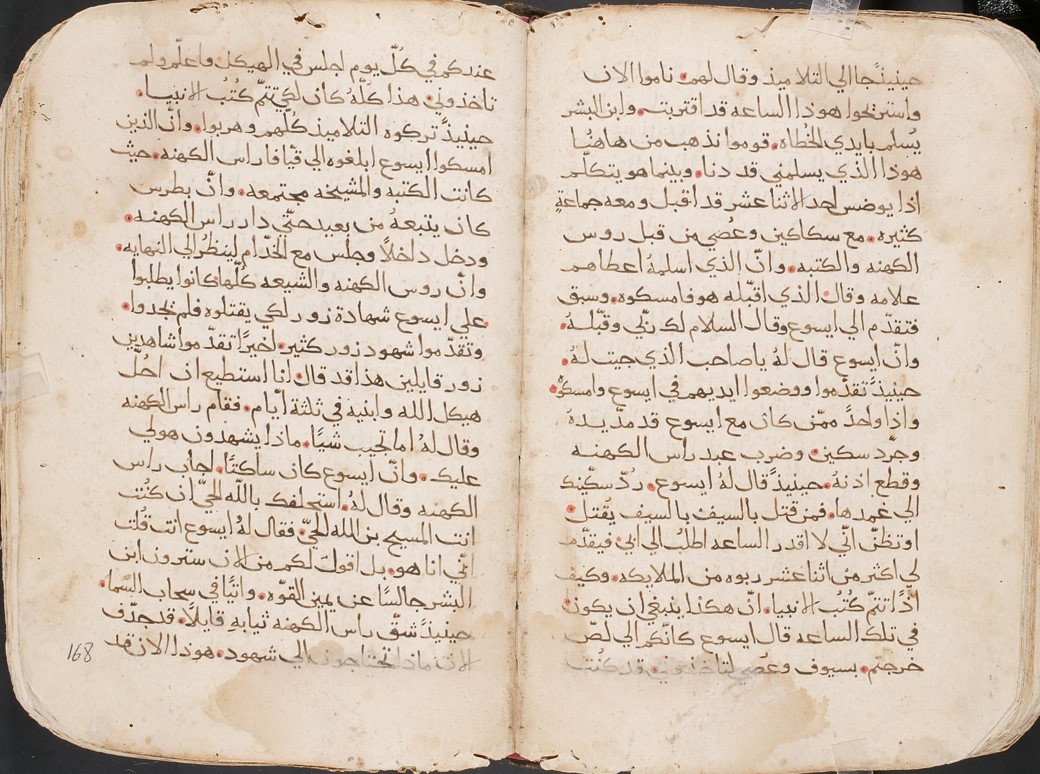 حينيذ جا الي التلاميذ وقال لهم ناموا الان
واستريحوا هوذا الساعه قد اقتربت وابن البشر
يُسلم بايدي الخُطاه قوموا نذهب من هاهُنا
هوذا الذي يسلمني قد دنا وبينما هو يتكلّم
اذا يوضس احد الاثنا عشر قد اقبل ومعه جماعةٍ
كثيره مع سكاكين وعُصي من قبل روس
الكهنه والكتبه وانّ الذي اسلمهُ اعطاهم
علامه وقال الذي اقبّله هو فامسكوه وسبق
فتقدّم الي ايسوع وقال السلام لك ربّي وقبّلهُ
وانّ ايسوع قال لهُ ياصاحب الذي جيت لهُ
حينيذً تقدّموا ووضعوا ايديهم في ايسوع وامسكوهُ
واذا واحدً ممّن كان مع ايسوع قد مدّ يدهُ
وجرّد سكين وضرب عبد راس الكهنه
وقطع اذنهُ حينيذً قال لهُ ايسوع ردّ سكّينك
الي غمدها فمن قتل بالسيف بالسيف يقُتل
اوتظنّ انّي لا اقدر الساعه اطلبُ الي ابي فيقدّم
لي اكثر من اثنا عشر ربوه من الملايكه وكيف
اذًا تتمّ كُتُب الانبيا انّ هكذا ينبغي ان يكون
في تلك الساعه قال ايسوع كانّكم الي لصّ
خرجتم بسيوف وعُصي لتاخذوني قد كُنت
عندكم في كلّ يوم اجلس في الهيكل واعلّم ولم
تاخذوني هذا كلّهُ كان لكي تتمّ كُتُب الانبيا
حينيذً تركوه التلاميذ كلّهم وهربوا وانّ الذين
امسكوا ايسوع ابلغوه الي قيافا راس الكهنه حيث
كانت الكتبه والمشيخه مجتمعه وانّ بطرس
كان يتبعهُ من بعيد حتّي دار راس الكهنه
ودخل داخلاً وجلس مع الخدّام لينظرُ الي النهايه
وانّ روس الكهنه والشيعه كلّها كانوا يطلبوا
علي ايسوع شهادة زور لكي يقتلوه فلم يجدوا
وتقدّموا شهود زور كثير اخيرًا تقدّموا شاهدين
زور قايلين هذا قد قال انا استطيع ان احُلّ
هيكل الله وابنيه في ثلثة ايّام فقام راس الكهنه
وقال لهُ اما تجيب شيًا ماذا يشهدون هولي
عليك وانّ ايسوع كان ساكتًا اجاب راس
الكهنه وقال لهُ استحلفك باللّه الحيّ ان كُنت
انت المسيح بن الله الحيّ فقال لهُ ايسوع انت قُلت
انّي انا هو بل اقول لكم من الان سترون ابن
البشر جالسًا عن يمين القوّه واتيًا في سحاب السّما
حينيذً شقّ راس الكهنه ثيابهِ قايلاً قد جدّف
الان ماذا تحتاجون الي شهود هوذا الان قد
168